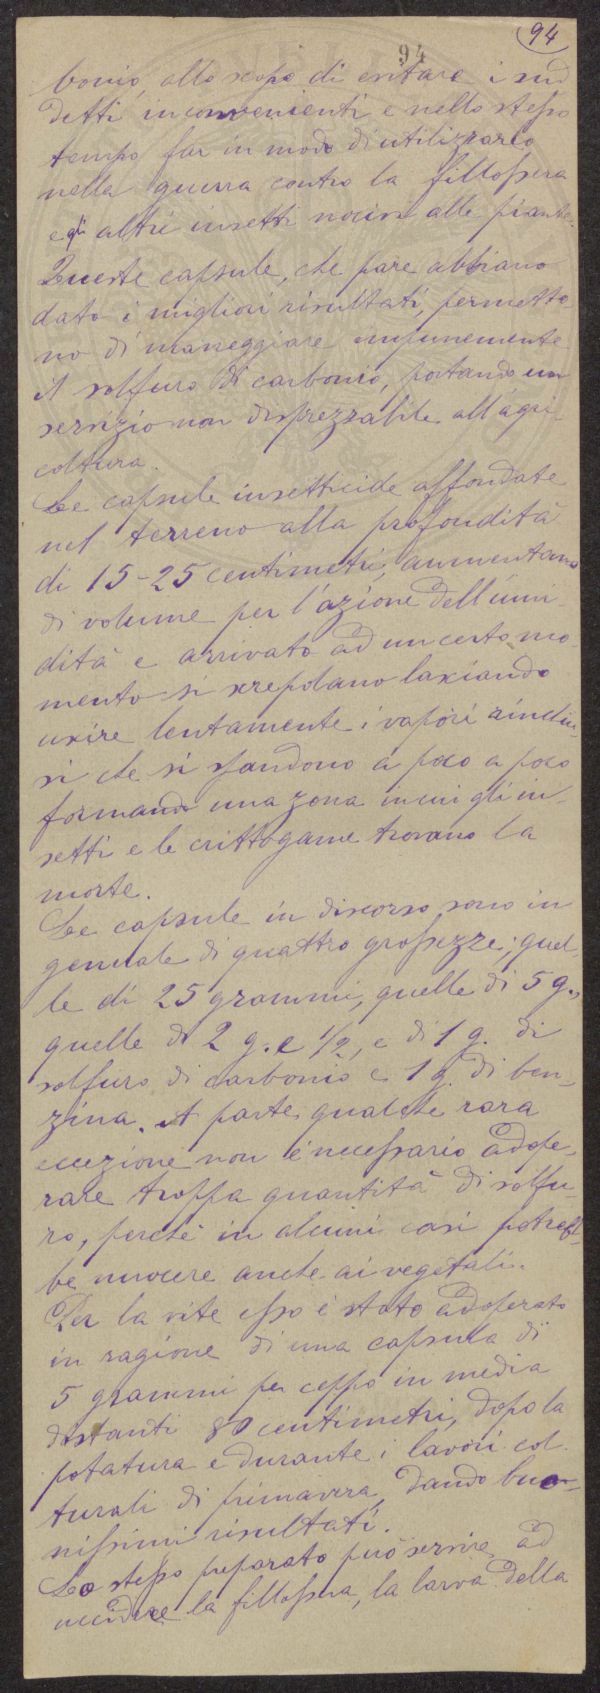 94
94
bonio, allo scopo di evitare i sud
detti inconvenienti e nello stesso
tempo far in modo di utilizzarlo
nella guerra contro la fillossera
e gli altri insetti nocivi alle piante.
Queste capsule, che pare abbiano
dato i migliori risultati, permetto
no di maneggiare impunemente
il solfuro di carbonio, portando un
servizio non disprezzabile all'agri-
coltura.
Le capsule insetticide affondate
nel terreno alla profondità
di 15-25 centimetri, aumentano
di volume per l'azione dell'umi-
dità e arrivato ad un certo mo-
mento si screpolano lasciando
uscire lentamente i vapori
si che si spandono a poco a poco
formando una zona in cui gli in-
setti e le crittogame trovano la
morte.
Le capsule in discorso sono in
generale di quattro grossezze; quel-
le di 25 grammi, quelle di 5 g.,
quelle di 2 g. e 1/2, e di 1 g. di
solfuro di carbonio e 1 g. di ben-
zina. A parte qualche rara
eccezione non è necessario adope-
rare troppa quantità di solfu-
ro, perchè in alcuni casi potreb-
be nuocere anche ai vegetali.
Per la vite esso è stato adoperato
in ragione di una capsula di
5 grammi per ceppo in media
distanti 80 centimetri, dopo la
potatura e durante i lavori col-
turali di primavera, dando buo-
nissimi risultati.
Lo stesso preparato può servire ad
uccidere la fillossera, la larva della